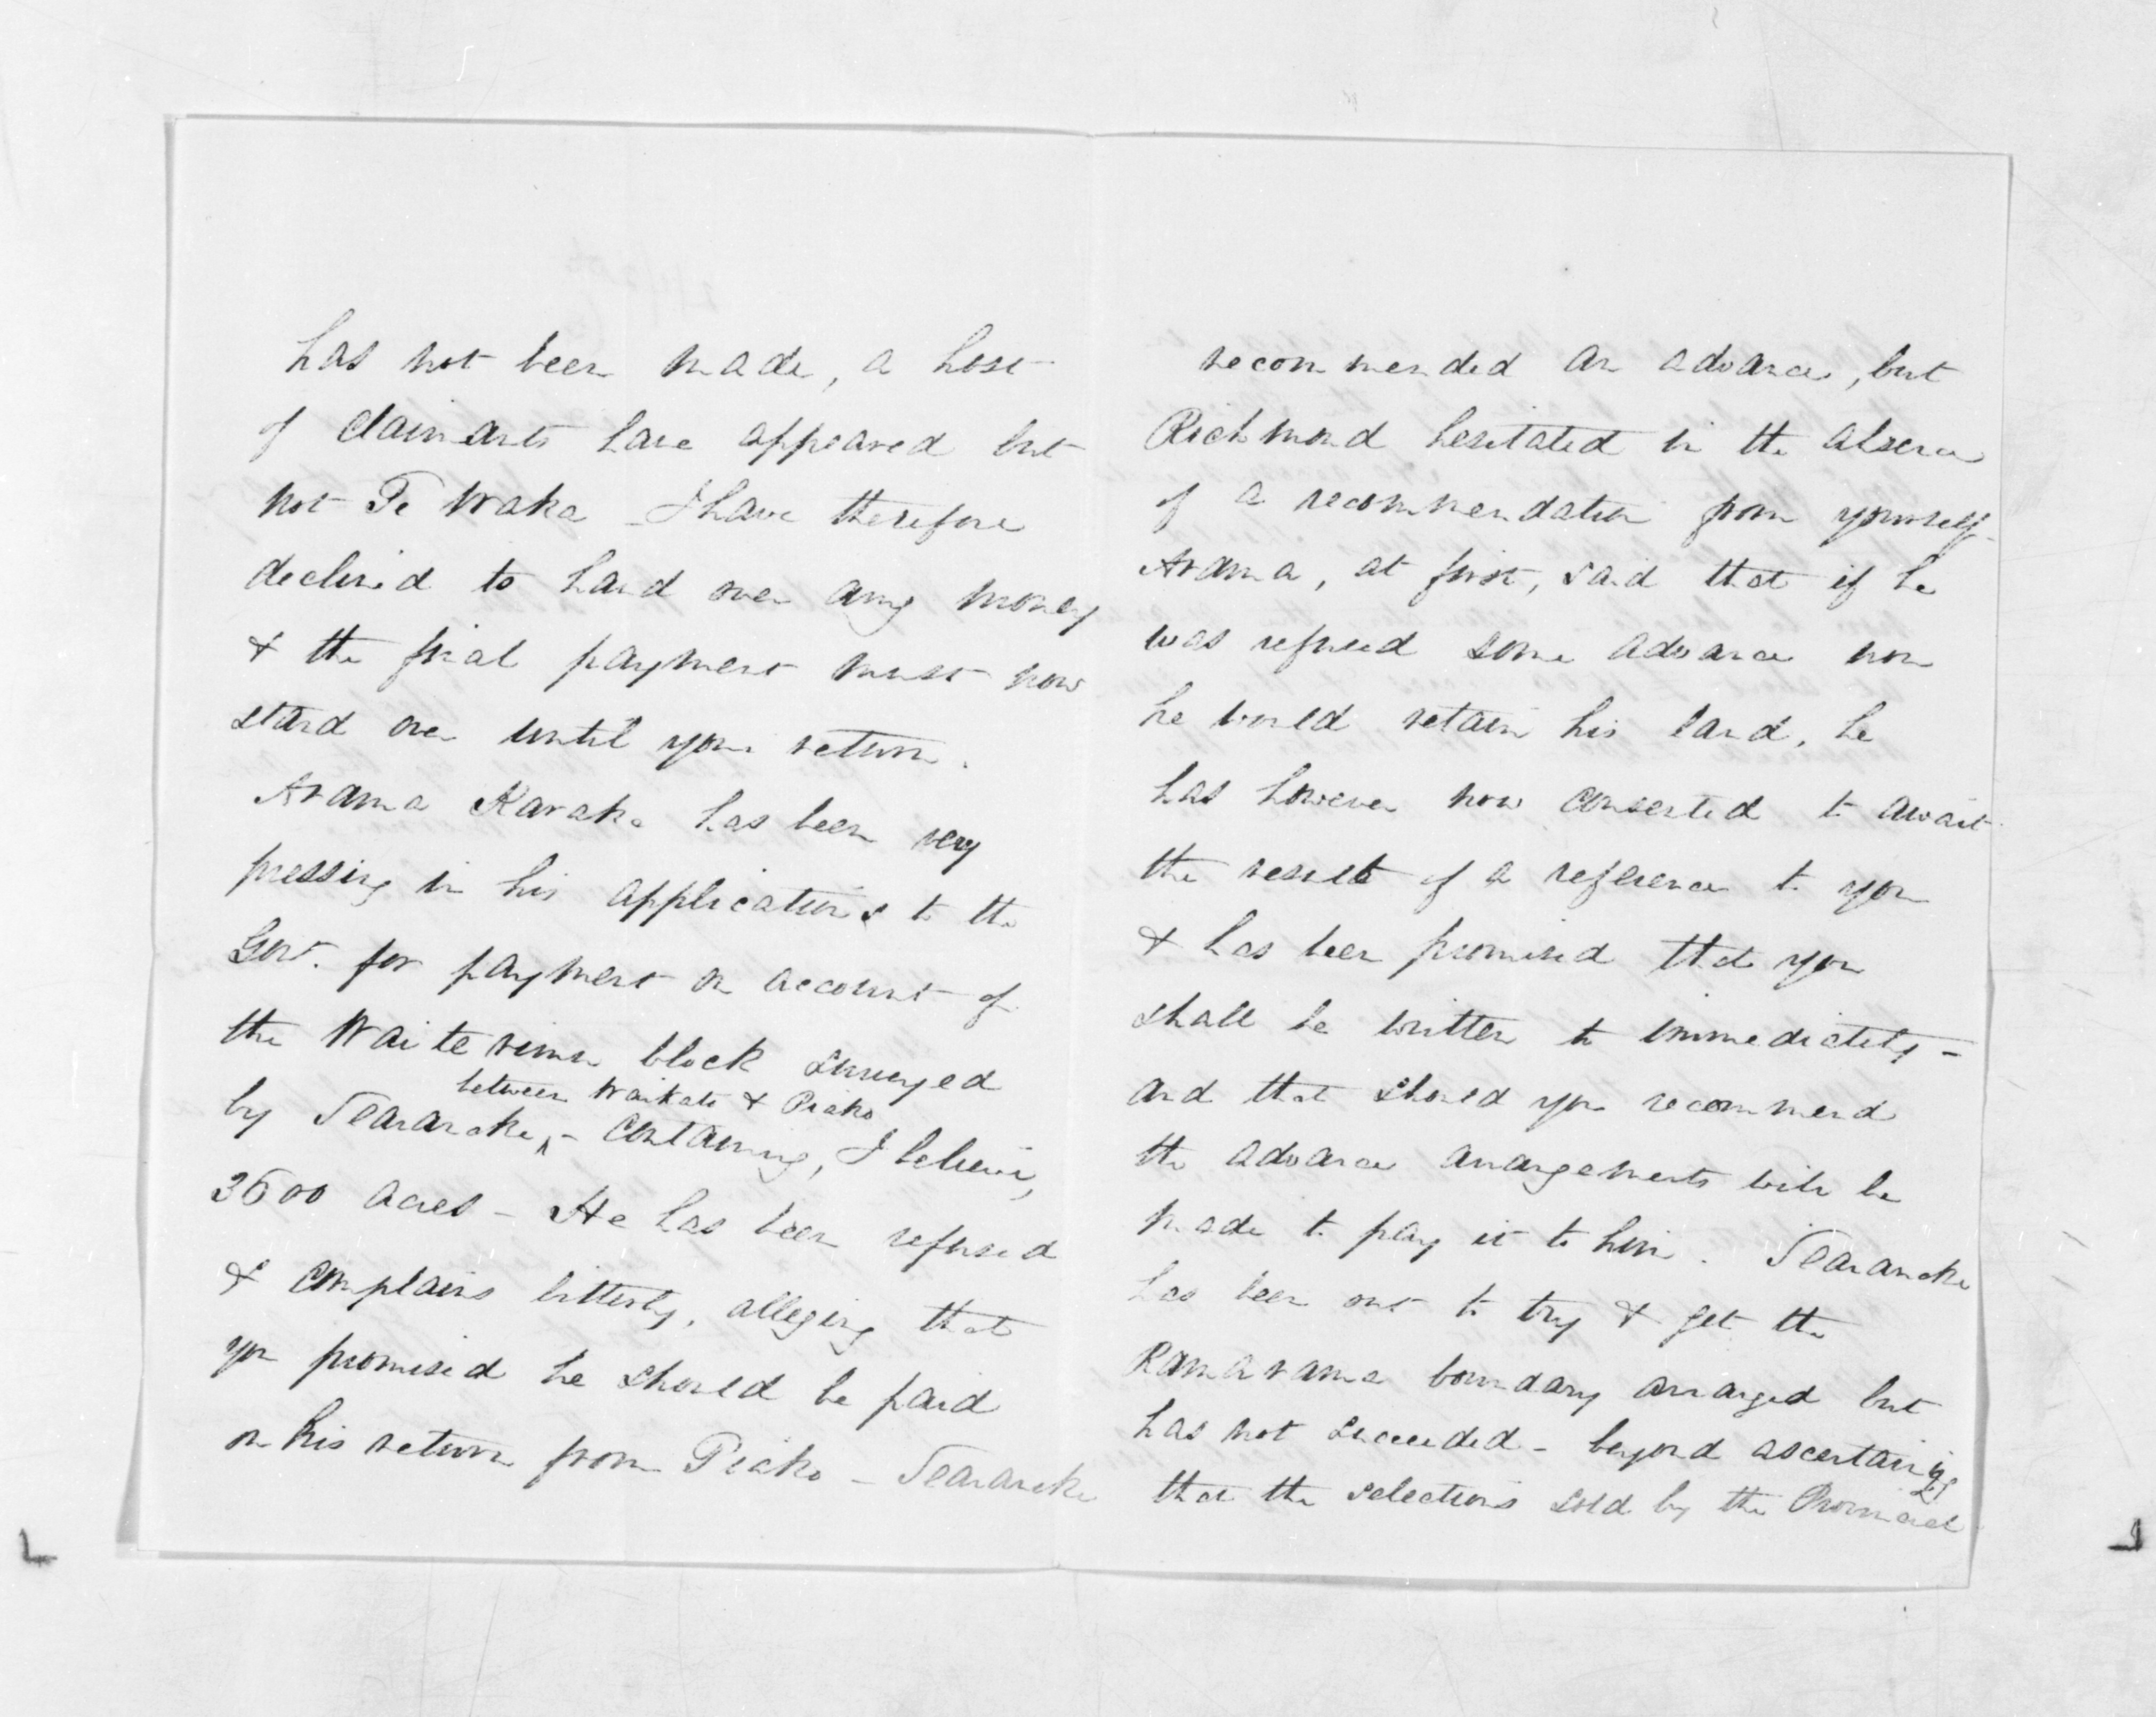 has not been made, a host
of claimants have appeared but
not Te Waka - I have therefore
declined to hand over any money
& the final payment must now
stand over until your return.
Arama Karaka has been very
pressing in his applications to the
Govt. for payment on account of
the Waiterimu block surveyed
between Waikato & Piako
by Searancke, - containing, I believe,
3600 acres - He has been refused
& complains bitterly, alleging that
you promised he should be paid
on his return from Piako - Searancke
recommended an advance, but
Richmond hesitated in the absence
of a recommendation from yourself -
Arama, at first, said that if he
was refused some advance now
he would retain his land, he
has however now consented to await
the result of a reference to you
& has been promised that you
shall be written to immediately -
and that should you recommend
the advance arrangements will be
made to pay it to him. Searancke
has been out to try & get the
Ramarama boundary arranged but
has not succeeded - beyond ascertaining
that the selections sold by the Provincial